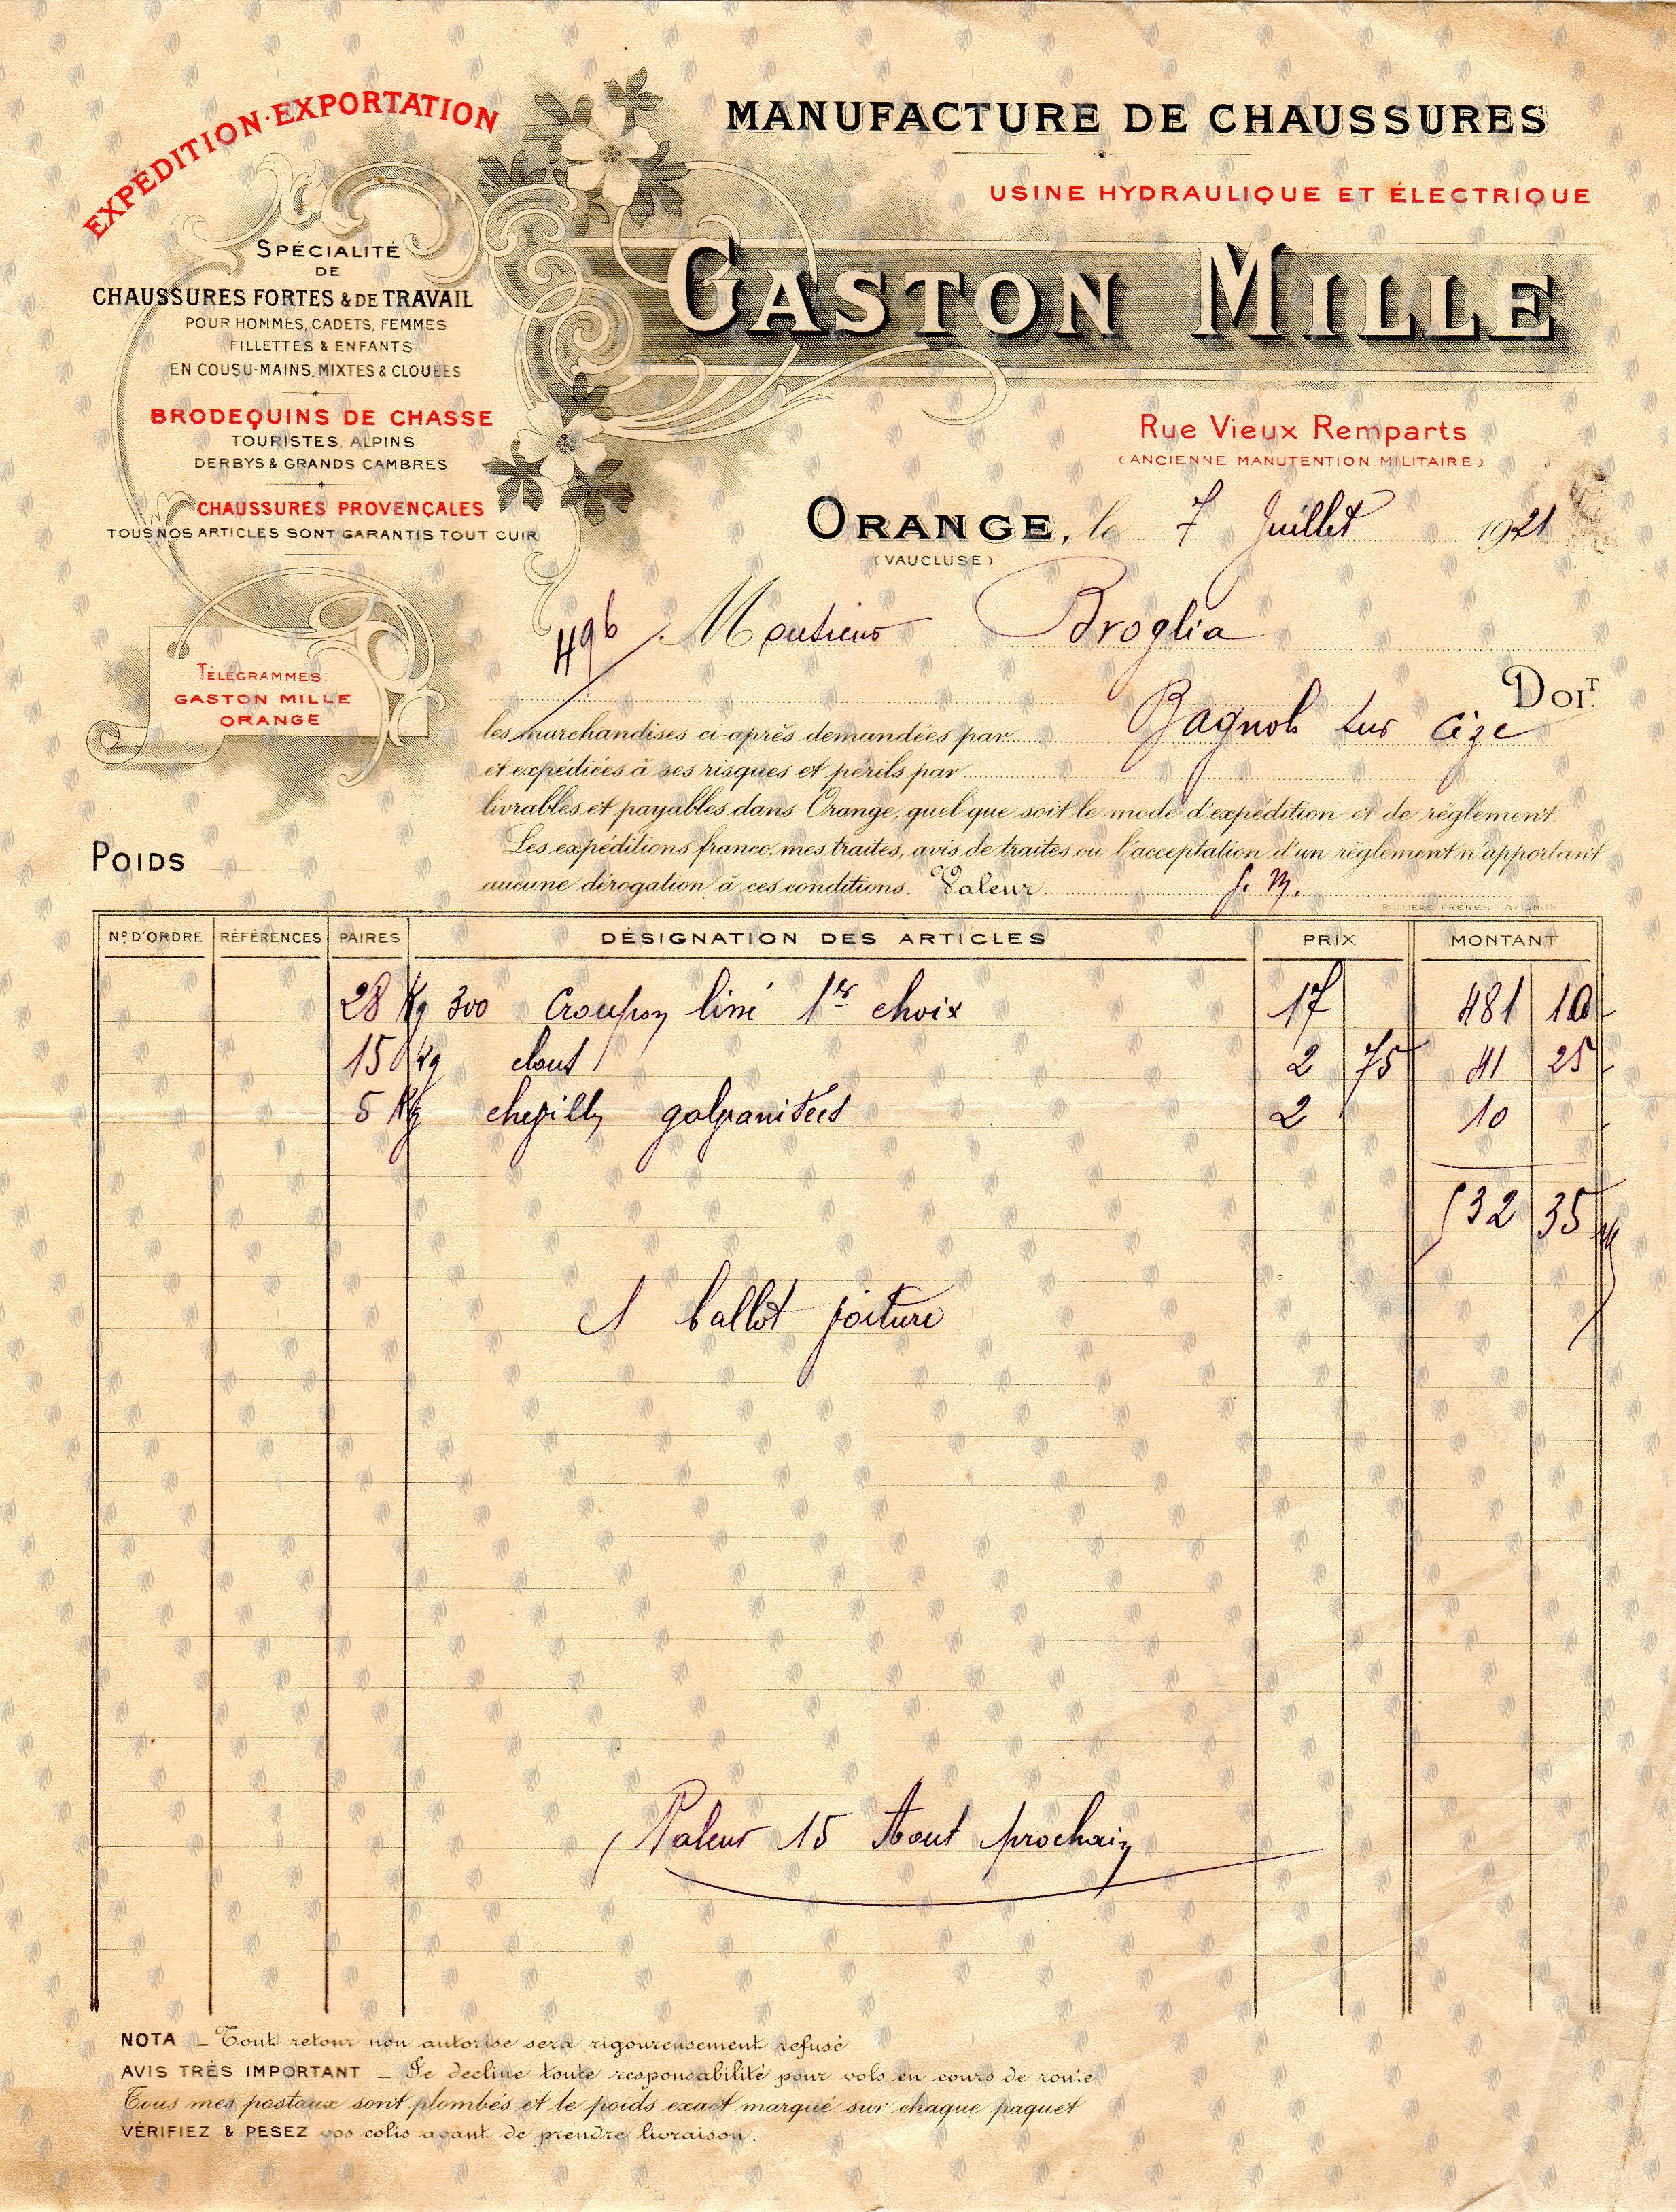 EXPÉDITION·EXPORTATION
SPÉCIALITÉ
DE
CHAUSSURES FORTES & DE TRAVAIL
POUR HOMMES, CADETS, FEMMES
FILLETTES & ENFANTS
EN COUSU-MAINS, MIXTES & CLOUÉES
BRODEQUINS DE CHASSE
TOURISTES, ALPINS
DERBYS & GRANDS CAMBRES
CHAUSSURES PROVENÇALES
TOUS NOS ARTICLES SONT GARANTIS TOUT CUIR
TÉLÉGRAMMES:
GASTON MILLE
ORANGE
MANUFACTURE DE CHAUSSURES
USINE HYDRAULIQUE ET ÉLECTRIQUE
GASTON MILLE
Rue Vieux Remparts
(ANCIENNE MANUTENTION MILITAIRE)
ORANGE, le 7 Juillet 1921
(VAUCLUSE)
496 Monsieur Broglia
DOIT.
les marchandises ci-après demandées par Bagnols sur Cèze
et expédiées à ses risques et périls par
livrables et payables dans Orange, quel que soit le mode d'expédition et de règlement.
Les expéditions franco, mes traites, avis de traites ou l'acceptation d'un règlement n'apportant
aucune dérogation à ces conditions. Valeur
POIDS
RULLIERE FRÈRES AVIGNON
No D'ORDRE RÉFÉRENCES PAIRES DÉSIGNATION DES ARTICLES PRIX MONTANT
28 Kg 300 Croupon liné 1er choix 17 481 10
15 Kg clous 2 75 41 25
5 Kg chevilles galvanisées 2 10
532 35
1 ballot voiture
Valeur 15 Aout prochain
NOTA _ Tout retour non autorise sera rigoureusement refusé
AVIS TRÈS IMPORTANT _ Je decline toute responsabilité pour vols en cours de route
Tous mes postaux sont plombés et le poids exact marqué sur chaque paquet
VÉRIFIEZ & PESEZ vos colis avant de prendre livraison.